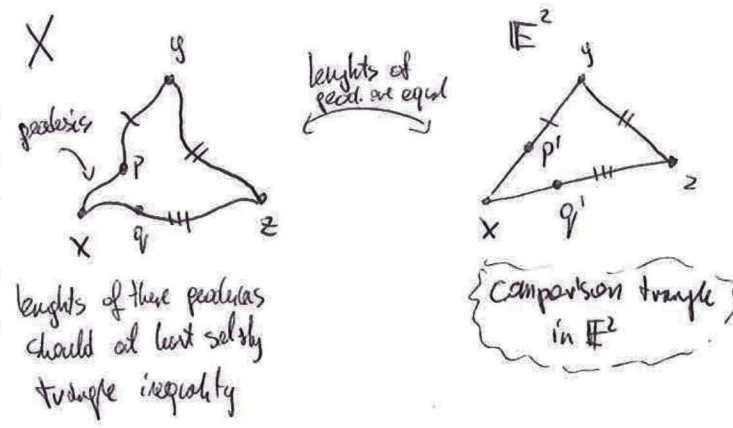 X
y
geodesics
p
x
q
z
lenghts of
geod. are equal
𝔼²
y
p'
x
q'
z
lenghts of there geodesics
should at least satisfy
triangle inequality
comparison triangle
in 𝔼²